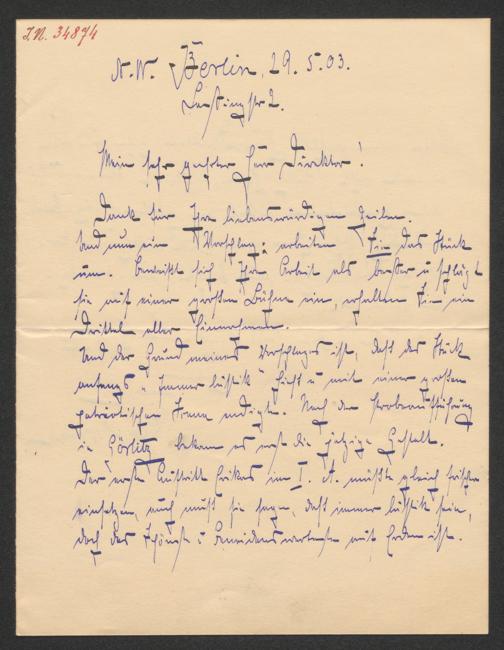 I.N. 34874
N.W. Berlin, 29.5.03.
Lessingstr 2.
Mein sehr geehrter Herr Direktor!
Dank für Ihre liebenswürdigen Zeilen.
Und nun ein Vorschlag: arbeiten Sie das Stück
um. Erweist sich Ihre Arbeit als besser u schlägt
sie auf einer großen Bühne ein, erhalten Sie ein
Drittel aller Einnahmen.
Und der Grund meines Vorschlages ist, daß das Stück
anfangs "Immer lustik" hieß u mit einer großen
patriotischen Szene endigte. Nach der Probeaufführung
in Görlitz bekam es erst die jetzige Gestalt.
Der erste Auftritt Erikas im I. A. müßte gleich frischer
einsetzen, auch muß sie sagen, daß immer lustik sein,
doch das Schönste u Beneidenswerteste auf Erden ist.